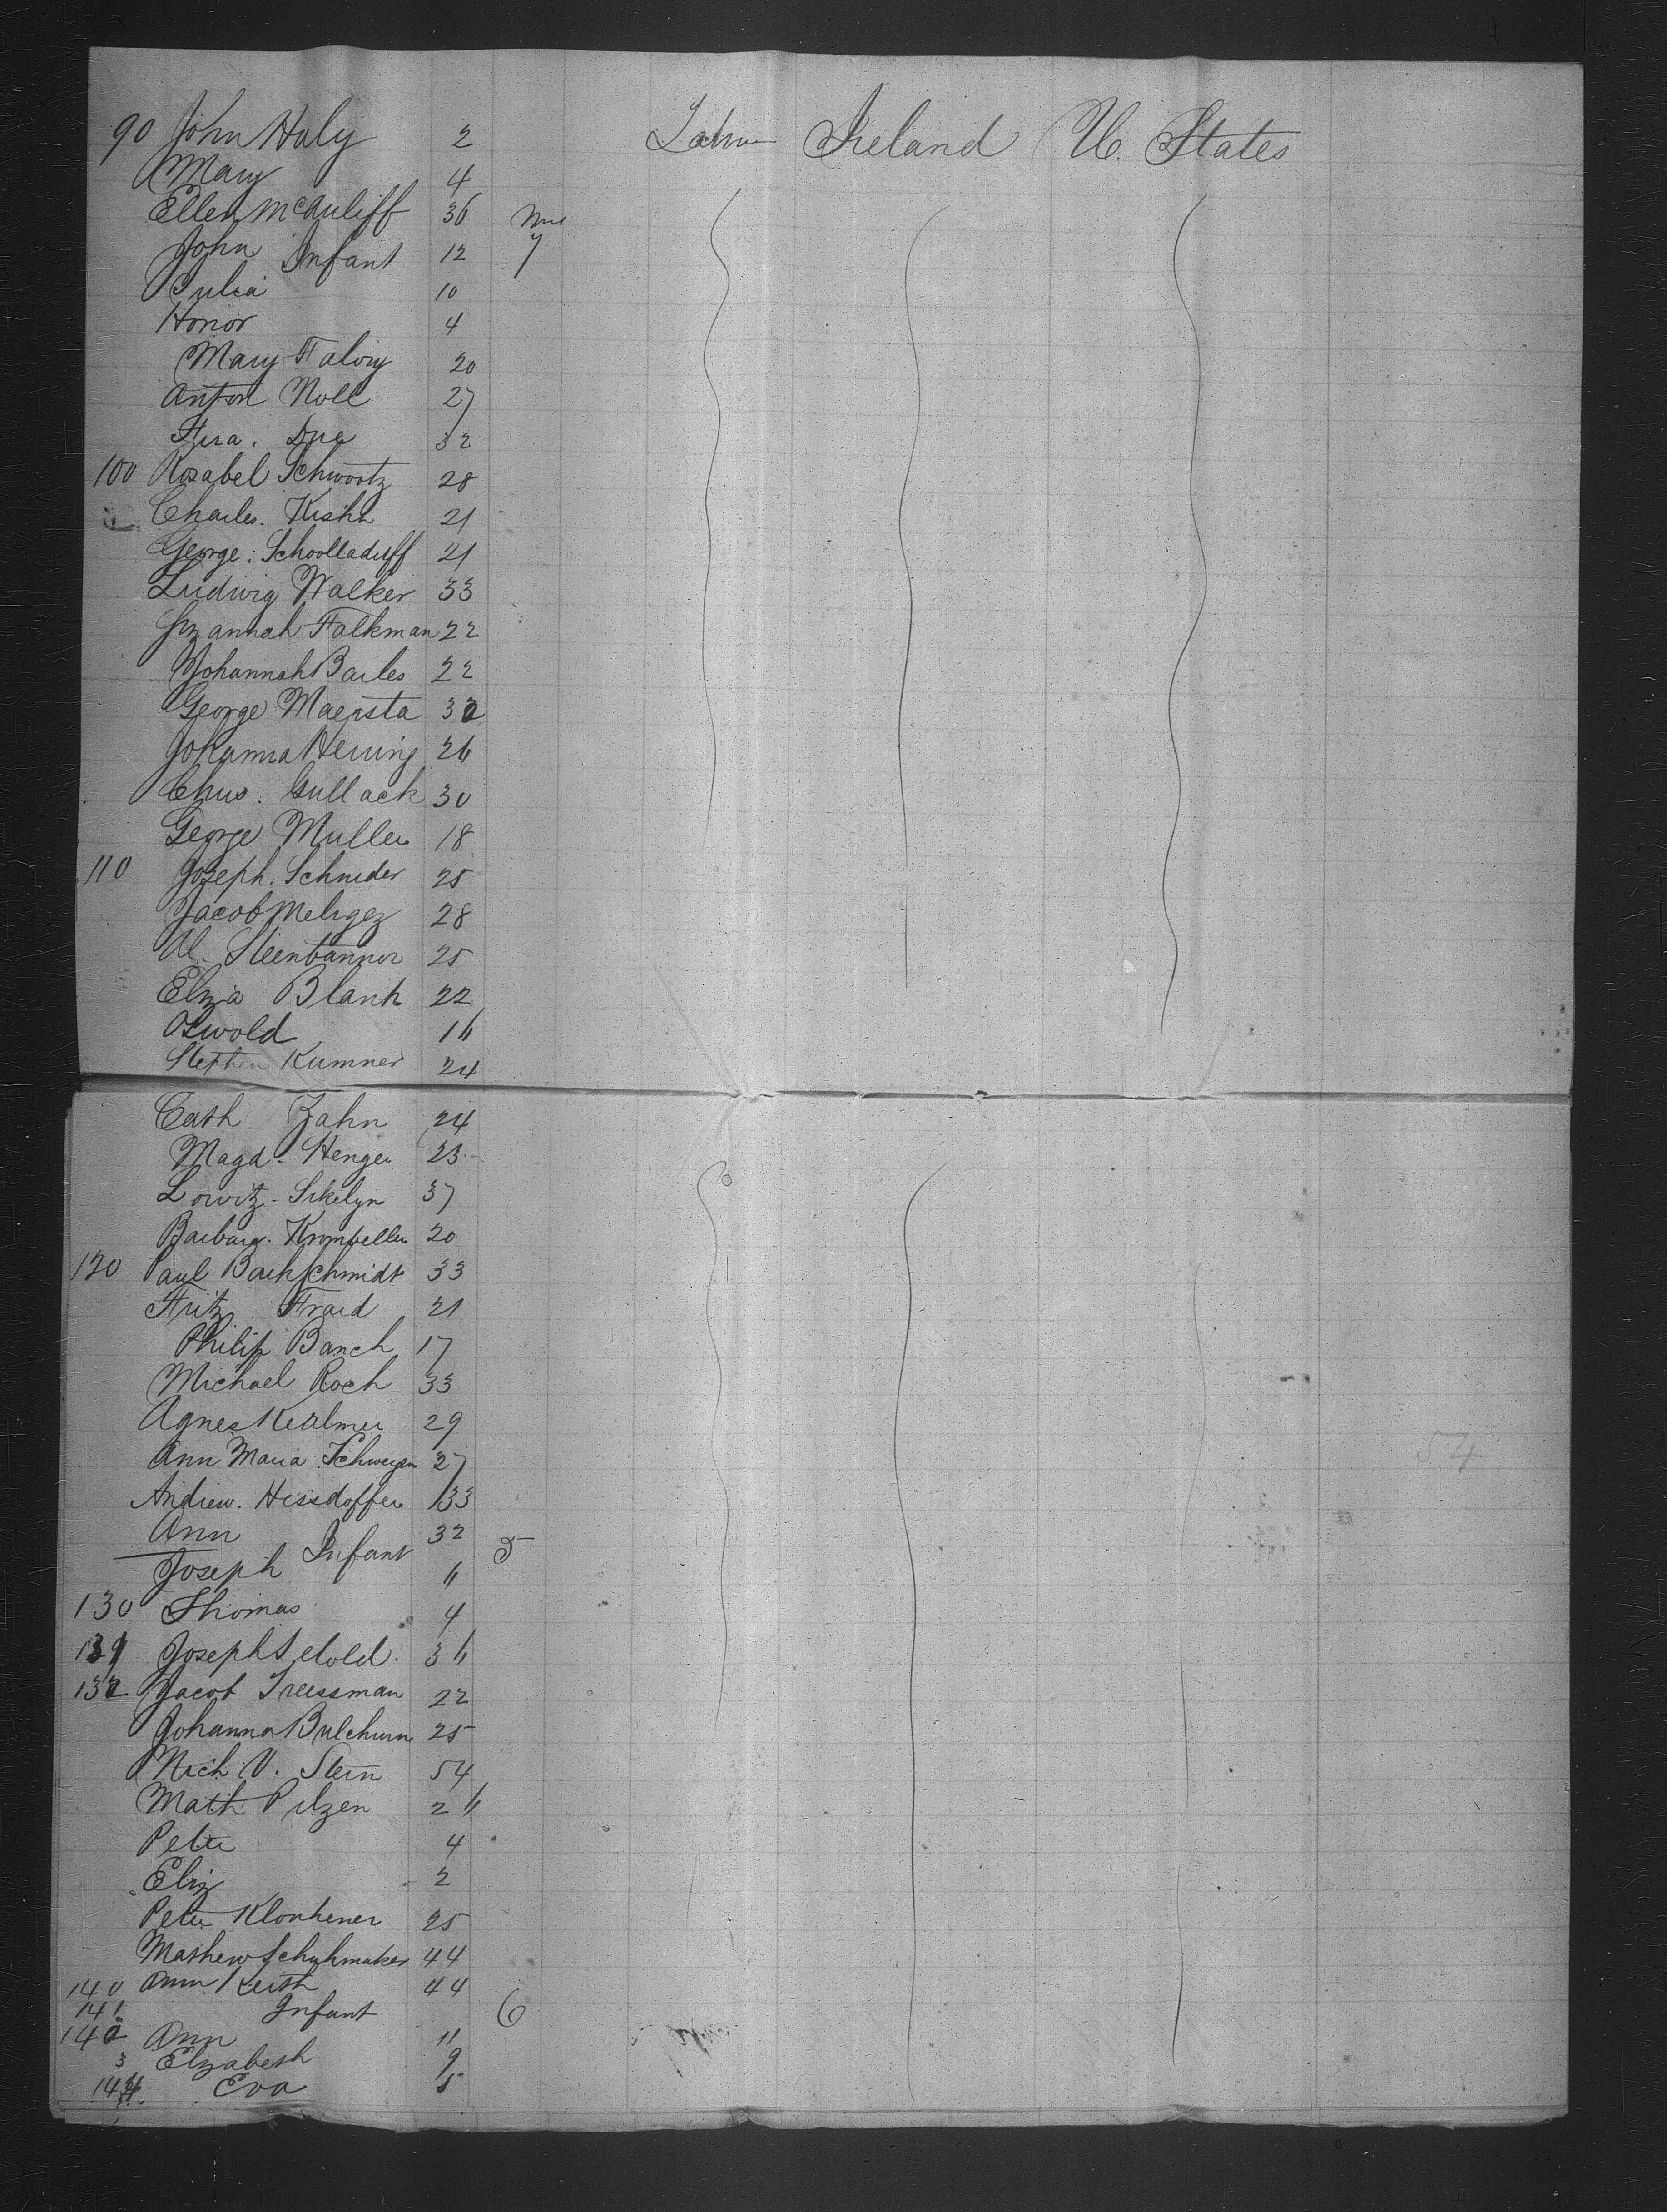 90 John Haly 2 Labr Ireland U. States
Mary 4
Ellen McAuliff 36
John Infant 12 7
Julia 10
Honor 4
Mary Falvy 20
Anton Noll 27
32
100 Rosabel Schwootz 28
Charles. 21
George. Schoolladuff 21
Ludwig Walker 33
Suzannah Falkman 22
Johannah Barles 22
George Maersta 32
Johanna Hering 26
Chus. Gullack 30
George Muller 18
110 Joseph. Schnider 25
Jacob Melrgez 28
Al. Steenbannor 25
Elza Blank 22
Oswold 16
Stephen Kumner 24
Cath Zahn 24
Magd. Henger 23
Lowitz. Sikelyn 37
Barbara. Krombeller 20
120 Paul Backschmidt 33
Fritz Fraid 21
Philip Banch 17
Michael Roch 33
Agnes Kealmer 29
Ann Maria Schweyen 27
Andrew. Hessdoffer 33
Ann 32
Infant 5
Joseph 6
130 Thomas 4
131 Joseph Selold. 36
132 Jacob Treessman 22
Johanna Bulchurn 25
Mich V. Stein 54
Math Pilzen 26
Peter 4
Eliz 2
Peter Klonhener 25
Mathew Schuhmaker 44
140 Ann Keith 44
141 Infant 6
142 Ann 11
3 Elzabeth 9
144. Eva 5
54